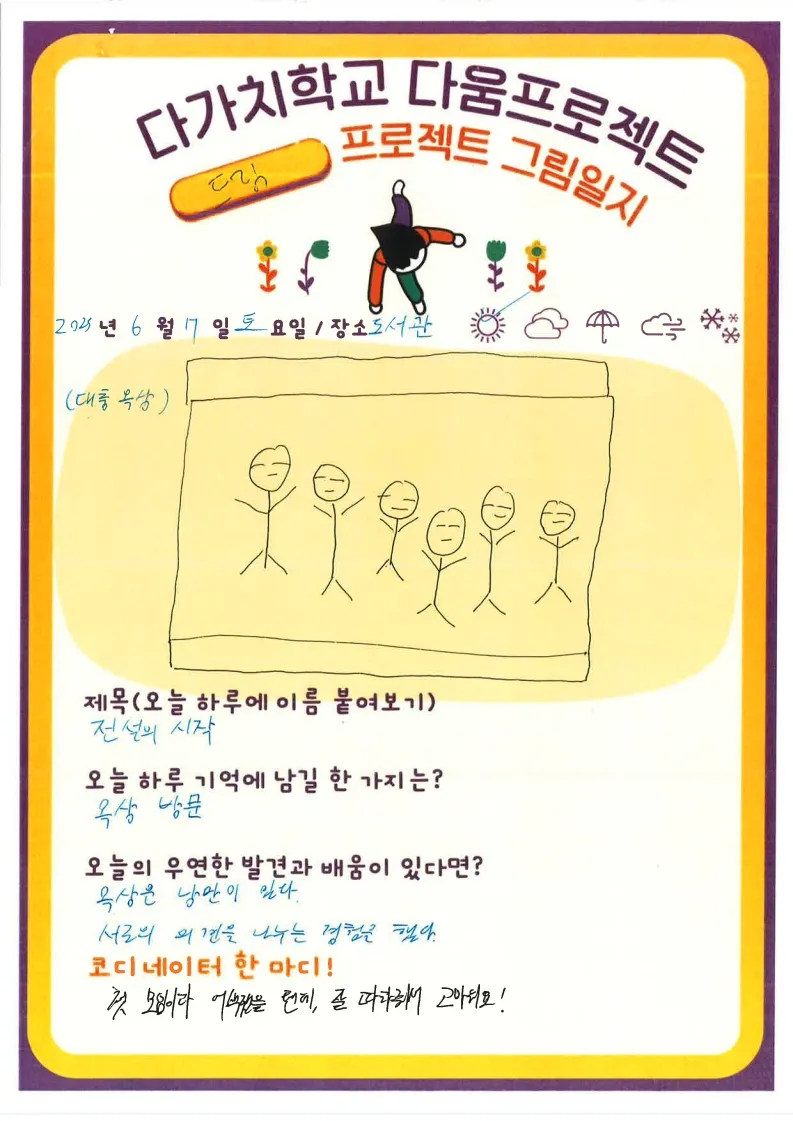 다가치학교 다움프로젝트
프로젝트 그림일지
드림
2025년 6월 7일 토요일 / 장소 도서관
(대충 옥상)
제목(오늘 하루에 이름 붙여보기)
전설의 시작
오늘 하루 기억에 남길 한 가지는?
옥상 방문
오늘의 우연한 발견과 배움이 있다면?
옥상은 낭만이 있다.
서로의 의견을 나누는 경험을 했다.
코디네이터 한 마디!
첫 모임이라 어색했을 텐데, 잘 따라와줘서 고마워요!